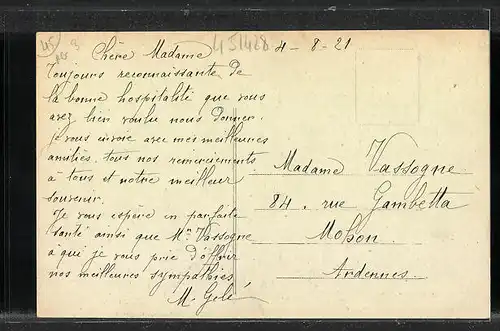 451428
4-8-21
Chère Madame
Toujours reconnaissante de
la bonne hospitalité que vous
avez bien voulu nous donner.
je vous envoie avec mes meilleures
amitiés, tous nos remerciements
a tous et notre meilleur
souvenir.
Je vous espère en parfaite
santé ainsi que Mr Vassogne
à qui je vous prie d'offrir
nos meilleures sympathies
M. Gelé
Madame Vassogne
84. rue Gambetta
Mohon.
Ardennes.